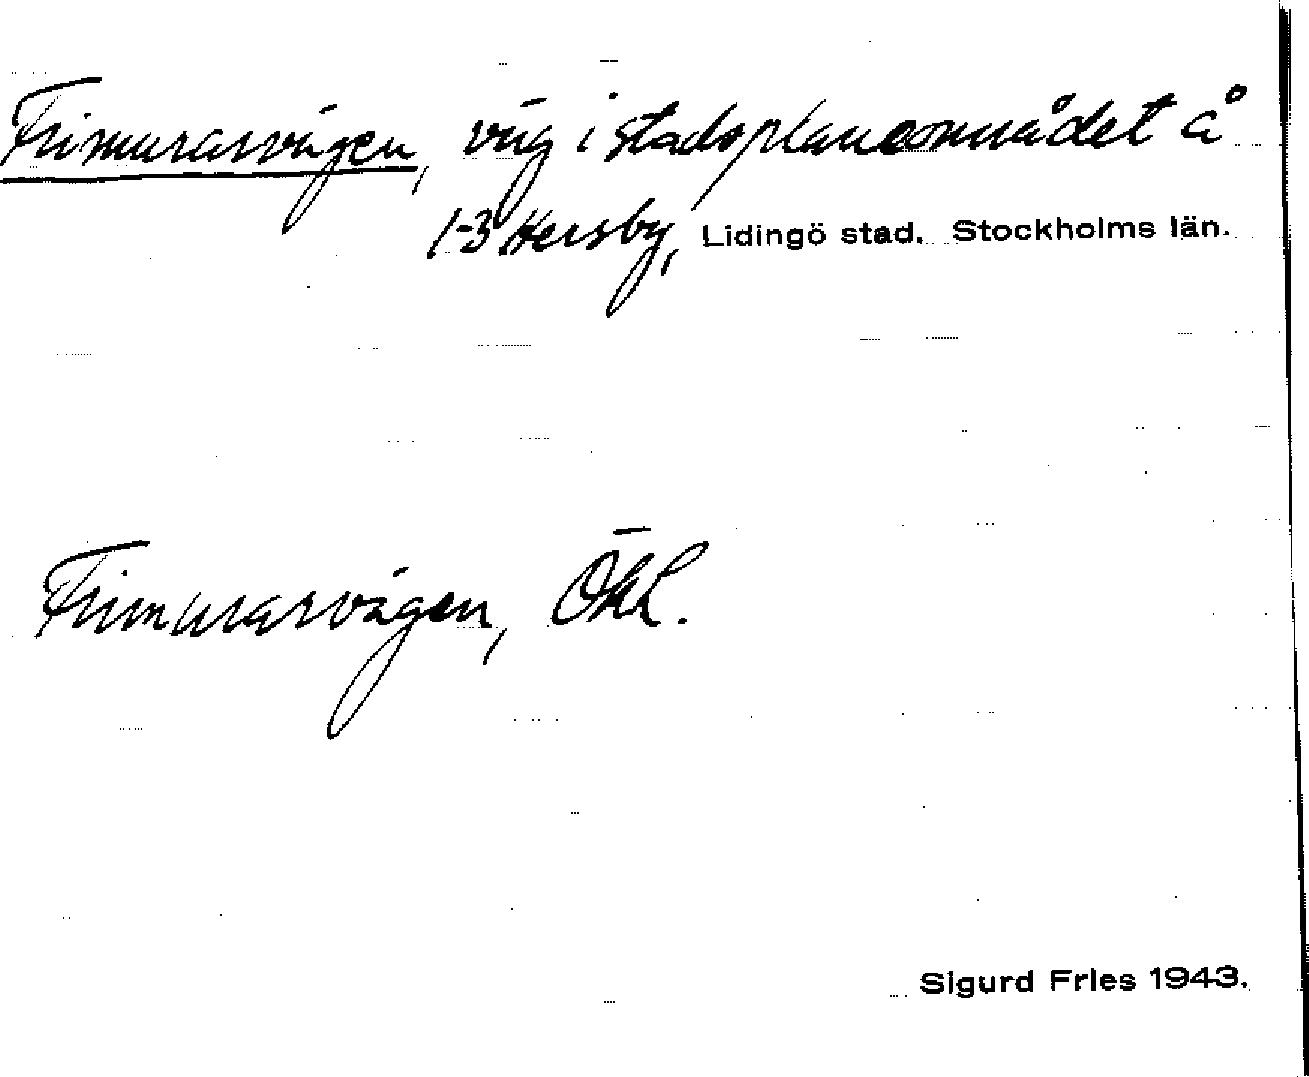 Frimurarvägen, väg i stadsplaneområdet å
1-3 Hersby, Lidingö stad. Stockholms län.
Frimurarvägen, Ökl.
Sigurd Fries 1943.